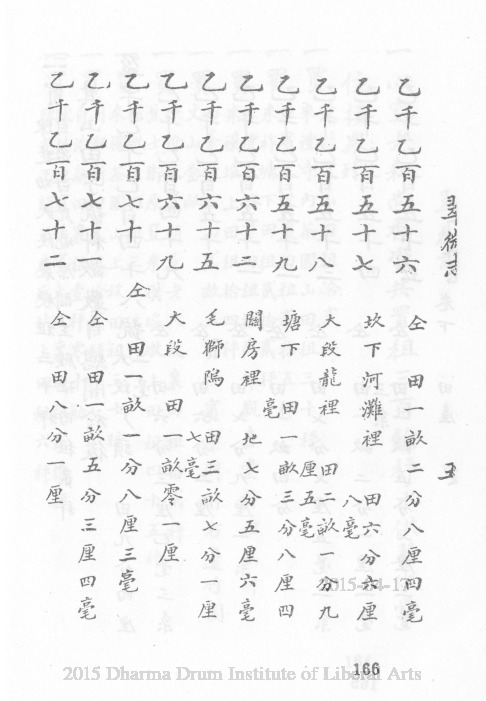 乙千乙百五十六 仝 田一畝二分八厘四毫
乙千乙百五十七 坎下河灘裡 田六分六厘八毫
乙千乙百五十八 大段龍裡 田二畝一分九厘五毫
乙千乙百五十九 塘下 田一畝三分八厘四毫
乙千乙百六十二 關房裡 地七分五厘六毫
乙千乙百六十五 毛獅隖 田三畝七分一厘七毫
乙千乙百六十九 大段 田 畝零一厘
乙千乙百七十 仝 田一畝一分八厘三毫
乙千乙百七十一 仝 田 畝五分三厘四毫
乙千乙百七十二 仝 田八分 厘
166
2015 Dharma Drum Institute of Liberal Arts